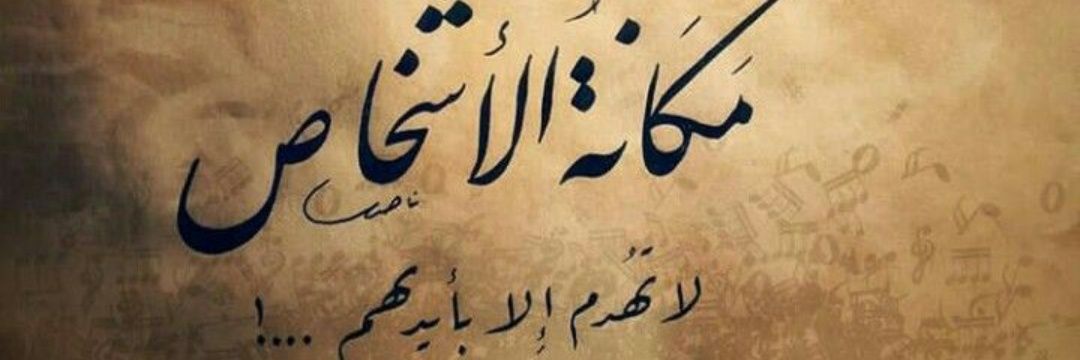 مَكَانَةُ الأشخاص
لا تُهدم إلا بأيديهم ....!